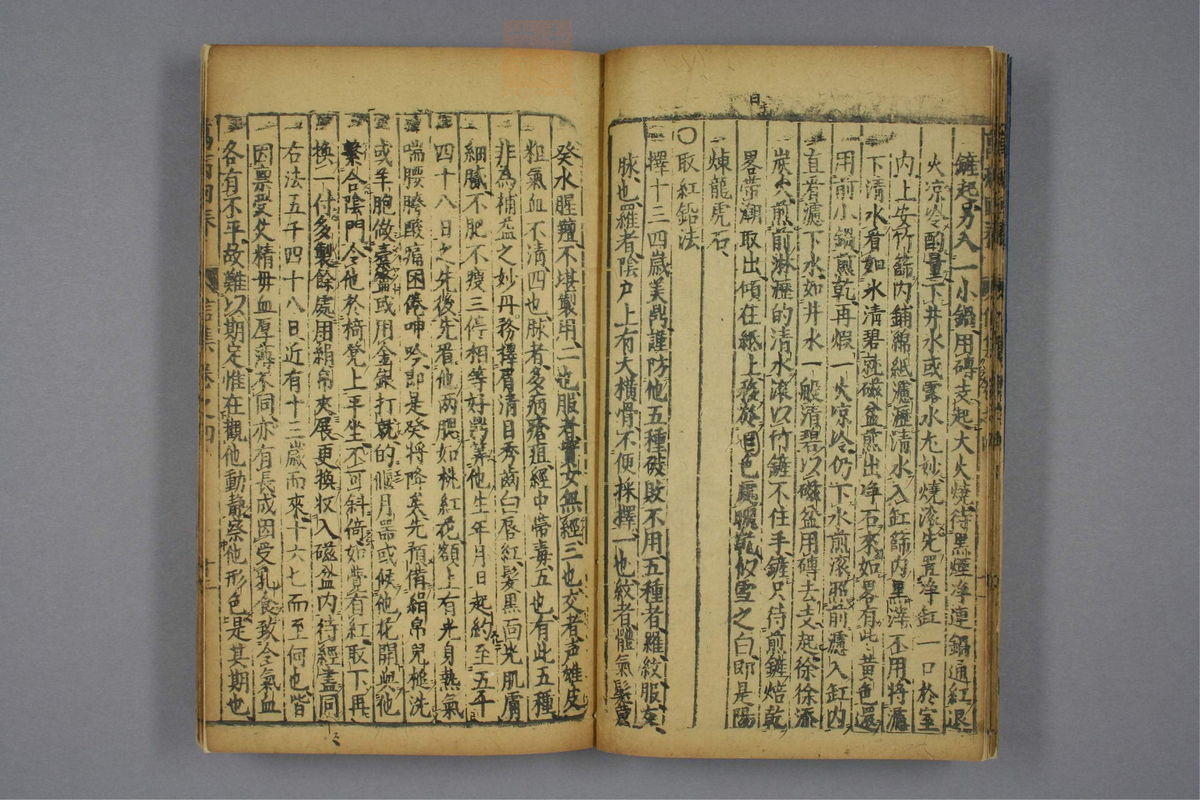 鏟起另入一小鍋用磚支起大火燒待黑煙淨連鍋通紅退
火涼冷酌量下井水或露水尤妙燒滾先置淨缸一口於室
內上安竹篩內鋪綿紙濾瀝清水入缸篩內黑滓不用將濾
下清水看如水清碧就磁盆煎出淨石來如畧有此黃色還
用前小鍋煎乾再煅一火涼冷仍下水煎滾照前濾入缸內
直看濾下水如井水一般清碧以磁盆用磚去支起徐徐添
炭火煎前淋瀝的清水滾以竹鏟不住手鏟只待前鏟焙乾
畧帶潮取出傾在紙上移於日色處曬乾似雪之白即是陽
煉龍虎石
〇取紅鉛法
擇十三四歲美鼎謹防他五種破敗不用五種者羅紋股交
脉也羅者陰户上有大橫骨不便採擇一也紋者體氣髮
癸水腥羶不堪製用二也股者實女無經三也交者声雄皮
粗氣血不清四也脉者多病瘡疽經中帶毒五也有此五種
非為補益之妙丹務擇眉清目秀齒白唇紅髮黑面光肌膚
細膩不肥不瘦三停相等好鼎筭他生年月日起約至五千
四十八日之先後先看他兩腮如桃紅花額上有光身熱氣
喘腰胯酸痛困倦呻吟即是癸將降矣先預備絹帛兒槌洗
或羊胞做橐籥或用金銀打就的偃月噐或候他花開與他
繫合陰門令他於椅凳上平坐不可斜倚如覺有紅取下再
換一付多製餘處用絹帛夾展更換收入磁盆內待經盡同
右法五千四十八日近有十三歲而來十六七而至何也皆
因禀受父精毋血厚薄不同亦有長成因受乳食致令氣血
各有不平故難以期定惟在觀他動靜察他形色是其期也